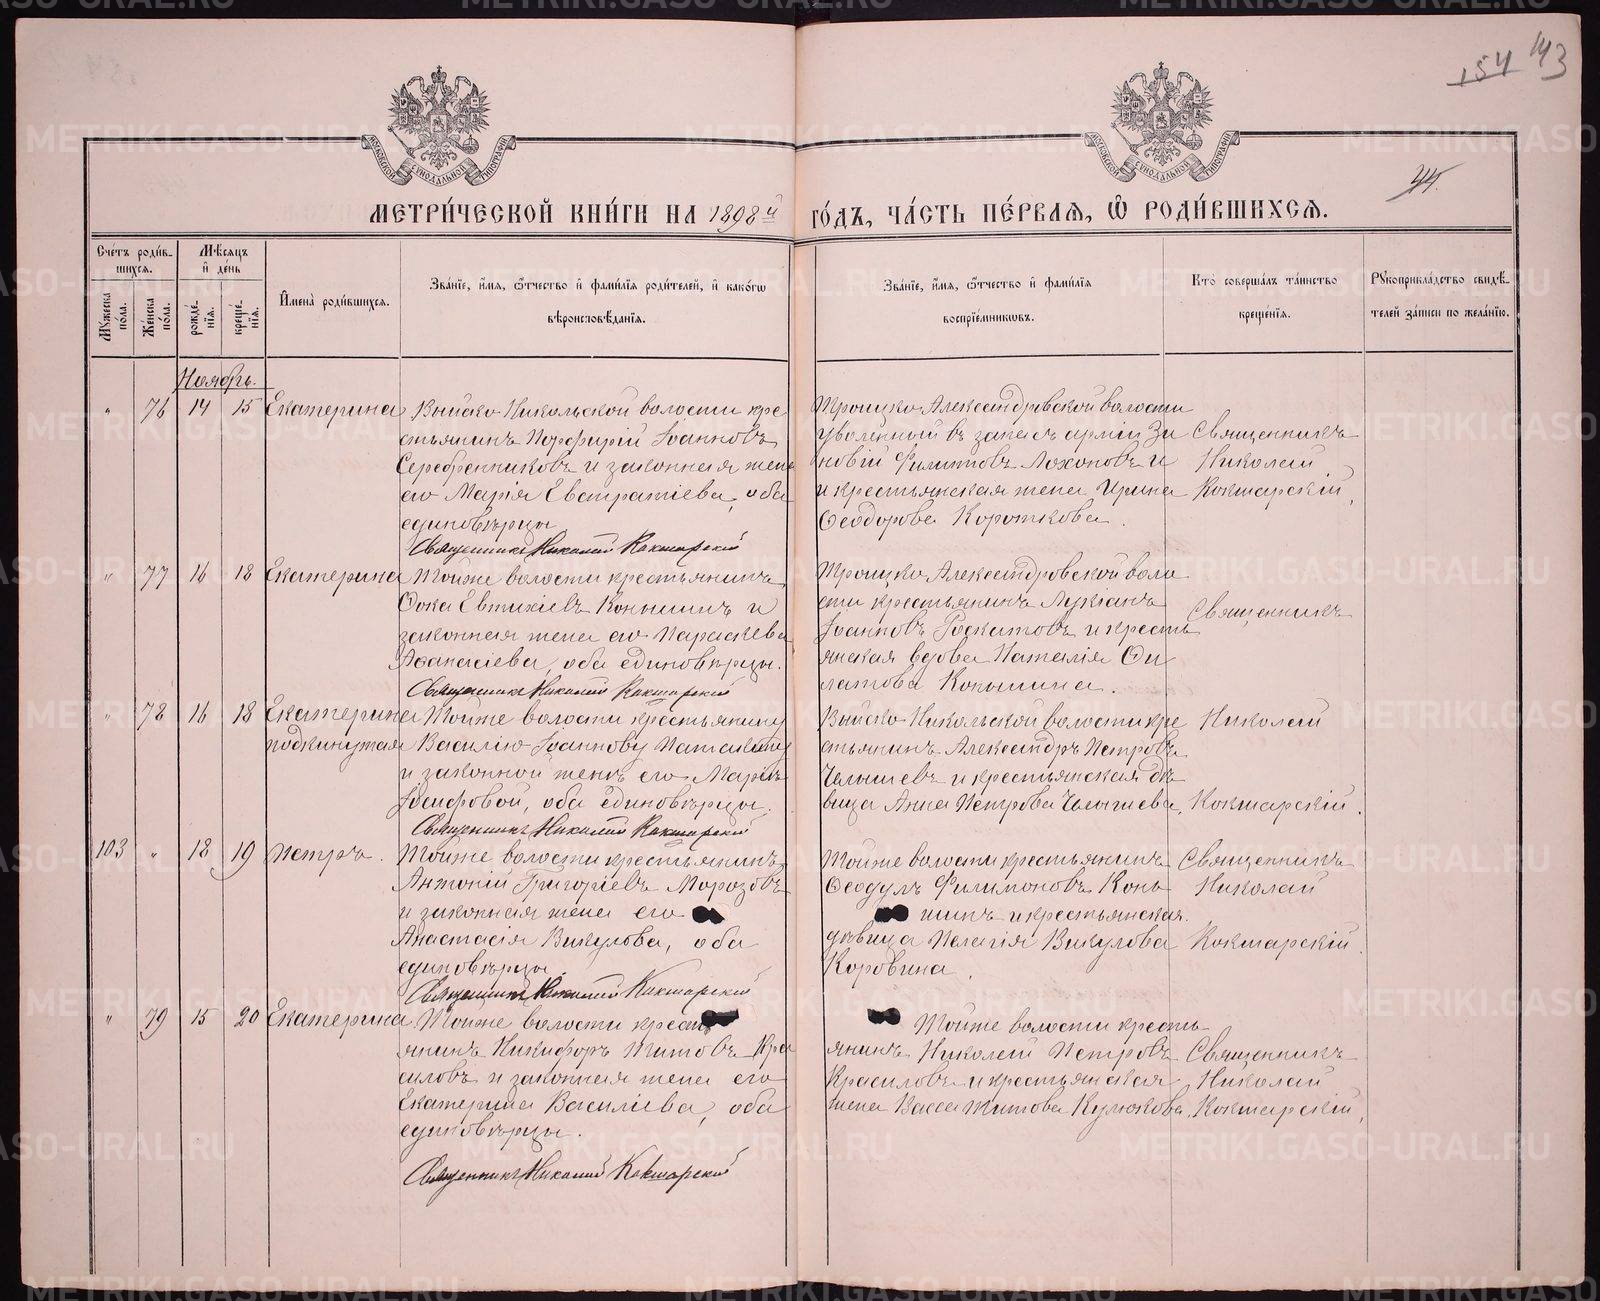 154 143
44.
МОСКОВСКОЙ СѴНОДАЛЬНОЙ ТИПОГРАФІИ
МОСКОВСКОЙ СѴНОДАЛЬНОЙ ТИПОГРАФІИ
МЕТРИ́ЧЕСКОЙ КНИ́ГИ НА 1898й ГО́ДЪ, ЧА́СТЬ ПЕ́РВАЯ, Ѽ РОДИ́ВШИХСЯ.
Сче́тъ роди́в-
шихся.
Мѣ́сяцъ
и҆ де́нь
Мꙋ́жеска по́ла.
Же́нска по́ла.
рожде́-
нїя.
креще́-
нїя.
И҆мена̀ роди́вшихся.
Зва́нїе, и҆́мя, ѻ҆́тчество и҆ фами́лїя роди́телей, и҆ како́гѡ
вѣроисповѣ́данїя.
Зва́нїе, и҆́мя, ѻ҆́тчество и҆ фами́лїя
воспрїе́мникѡвъ.
Кто̀ соверша́лъ та́инство
креще́нїя.
Рꙋкоприкла́дство свидѣ́-
телей за́писи по жела́нїю.
Ноябрь.
" 76 14 15 Екатерина
Выйско-Никольской волости кре
стьянинъ Порфирій Іоанновъ
Серебренниковъ и законная жена
его Марія Евстратіева, оба
единовѣрцы
Священникъ Николай Кокшарскій
Троицко-Александровской волости
уволенный въ запасъ арміи Зи
новій Филиповъ Лохоновъ и
и крестьянская жена Ирина
Ѳеодорова Короткова.
Священникъ
Николай
Кокшарскій,
" 77 16 18 Екатерина
Тойже волости крестьянинъ
Ѳока Евтихіевъ Коньшинъ и
законная жена его Параскева
Аѳанасіева, оба единовѣрцы.
Священникъ Николай Кокшарскій
Троицко-Александровской воло
сти крестьянинъ Лукіанъ
Іоанновъ и кресть
янская вдова Наталія Фи
латова Коньшина.
Священникъ
" 78 16 18 Екатерина
подкинутая
Тойже волости крестьянину
Василію Іоаннову
и законной женѣ его Маріи
Іосифовой, оба единовѣрцы.
Священникъ Николай Кокшарскій
Выйско-Никольской волости кре
стьянинъ Александръ Петровъ
и крестьянская дѣ
вица Анна Петрова
Николай
Кокшарскій.
103 " 18 19 Петръ.
Тойже волости крестьянинъ
Антоній Григоріевъ Морозовъ
и законная жена его
Анастасія Викулова, оба
единовѣрцы.
Священникъ Николай Кокшарскій
Тойже волости крестьянинъ
Ѳеодулъ Филимоновъ Конь
шинъ и крестьянская
дѣвица Пелагія Викулова
Коровина.
Священникъ
Николай
Кокшарскій.
" 79 15 20 Екатерина
Тойже волости кресть
янинъ Никифоръ Титовъ Кра
силовъ и законная жена его
Екатерина Василіева, оба
единовѣрцы.
Священникъ Николай Кокшарскій
Тойже волости кресть
янинъ Николай Петровъ
Красиловъ и крестьянская
жена Васса Титова Кулюкова,
Священникъ
Николай
Кокшарскій,
METRIKI.GASO-URAL.RU